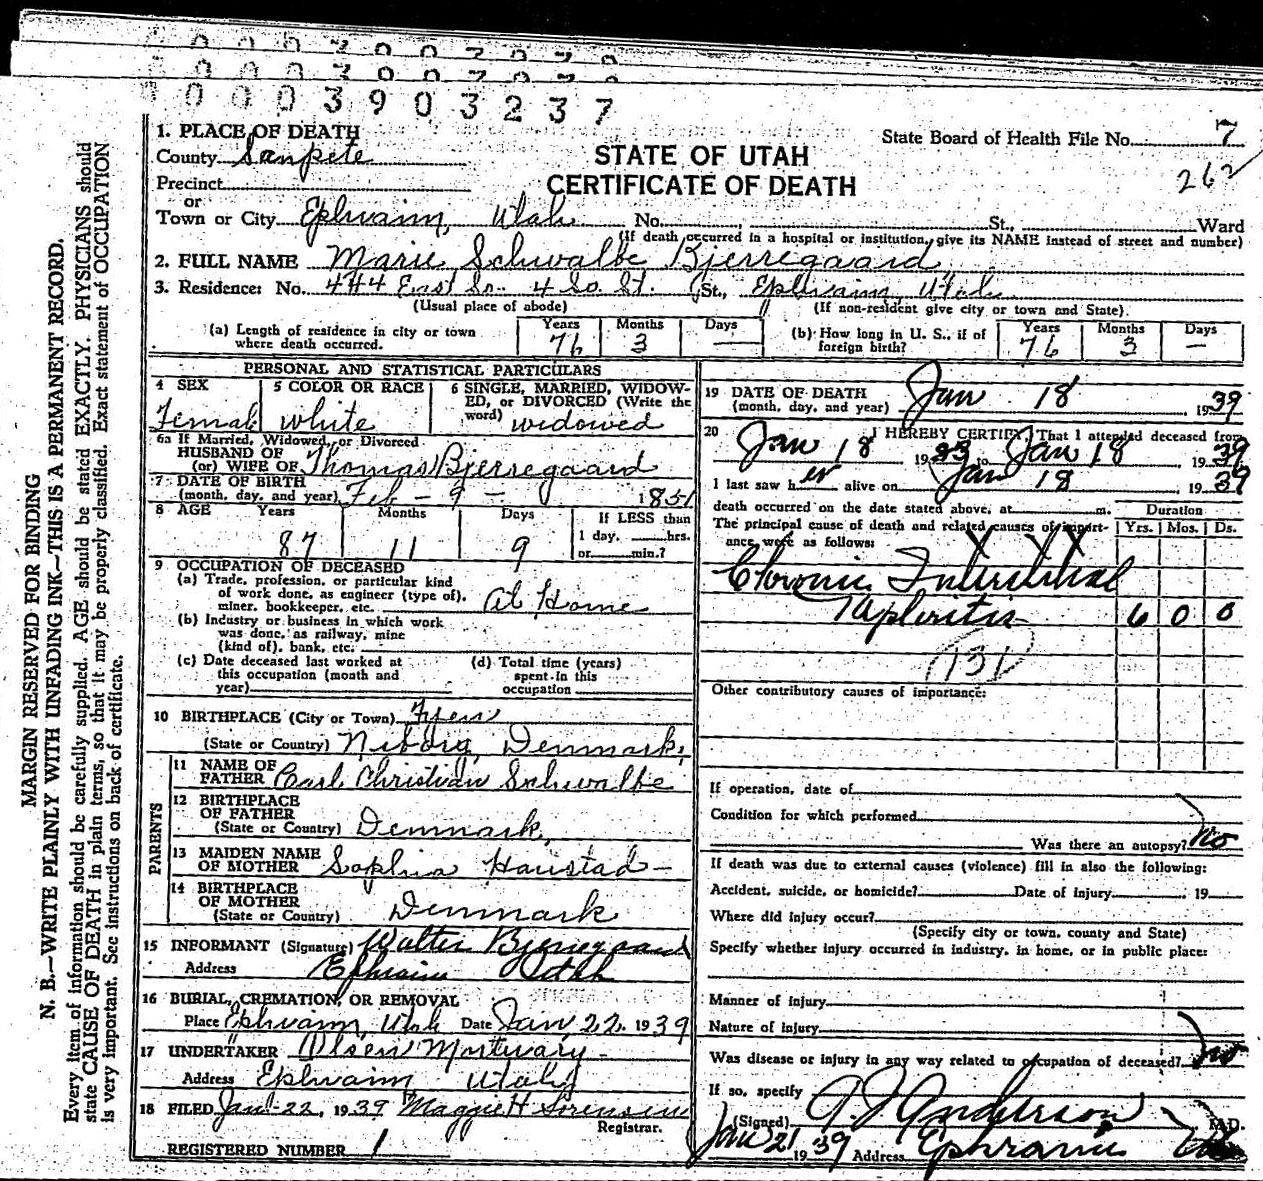 0003903237
1. PLACE OF DEATH
County Sanpete
Precinct
or
Town or City Ephraim, Utah No. St., Ward
(If death occurred in a hospital or institution, give its NAME instead of street and number)
State Board of Health File No. 7
262
STATE OF UTAH
CERTIFICATE OF DEATH
2. FULL NAME Marie Schwalbe Bjerregaard
3. Residence: No. 444 East So. 4 So. St. St., Ephraim, Utah
(Usual place of abode) (If non-resident give city or town and State)
(a) Length of residence in city or town where death occurred. Years 76 Months 3 Days —
(b) How long in U. S., if of foreign birth? Years 76 Months 3 Days —
PERSONAL AND STATISTICAL PARTICULARS
4 SEX Female
5 COLOR OR RACE white
6 SINGLE, MARRIED, WIDOWED, or DIVORCED (Write the word) widowed
6a If Married, Widowed, or Divorced
HUSBAND OF
(or) WIFE OF Thomas Bjerregaard
7 DATE OF BIRTH
(month, day, and year) Feb - 9 - 1851
8 AGE Years 87 Months 11 Days 9
If LESS than
1 day, hrs.
or min.?
9 OCCUPATION OF DECEASED
(a) Trade, profession, or particular kind
of work done, as engineer (type of),
miner, bookkeeper, etc. At Home
(b) Industry or business in which work
was done, as railway, mine
(kind of), bank, etc.
(c) Date deceased last worked at
this occupation (month and
year)
(d) Total time (years)
spent in this
occupation
10 BIRTHPLACE (City or Town) Fyen
(State or Country) Niborg, Denmark,
PARENTS
11 NAME OF
FATHER Carl Christian Schwalbe
12 BIRTHPLACE
OF FATHER
(State or Country) Denmark,
13 MAIDEN NAME
OF MOTHER Sophia Haustad —
14 BIRTHPLACE
OF MOTHER
(State or Country) Denmark
15 INFORMANT (Signature) Walter Bjerregaard
Address Ephraim Utah
16 BURIAL, CREMATION, OR REMOVAL
Place Ephraim, Utah Date Jan, 22, 1939
17 UNDERTAKER Olsen Mortuary -
Address Ephraim Utah
18 FILED Jan - 22, 1939 Maggie H Sorensen
Registrar.
REGISTERED NUMBER 1
19 DATE OF DEATH
(month, day, and year) Jan 18 1939
20 I HEREBY CERTIFY, That I attended deceased from
Jan 18 1933 to Jan 18 1939
I last saw her alive on Jan 18, 1939
death occurred on the date stated above, at m.
The principal cause of death and related causes of importance were as follows:
Duration
Yrs. Mos. Ds.
Chronic Interstitial
Nephritis 6 0 0
131
Other contributory causes of importance:
If operation, date of
Condition for which performed
Was there an autopsy? no
If death was due to external causes (violence) fill in also the following:
Accident, suicide, or homicide? Date of injury 19
Where did injury occur?
(Specify city or town, county and State)
Specify whether injury occurred in industry, in home, or in public place:
Manner of injury
Nature of injury
Was disease or injury in any way related to occupation of deceased? no
If so, specify
(Signed) Anderson M.D.
Jan 21 1939 Address Ephraim
MARGIN RESERVED FOR BINDING
N. B.—WRITE PLAINLY WITH UNFADING INK—THIS IS A PERMANENT RECORD.
Every item of information should be carefully supplied. AGE should be stated EXACTLY. PHYSICIANS should
state CAUSE OF DEATH in plain terms, so that it may be properly classified. Exact statement of OCCUPATION
is very important. See instructions on back of certificate.